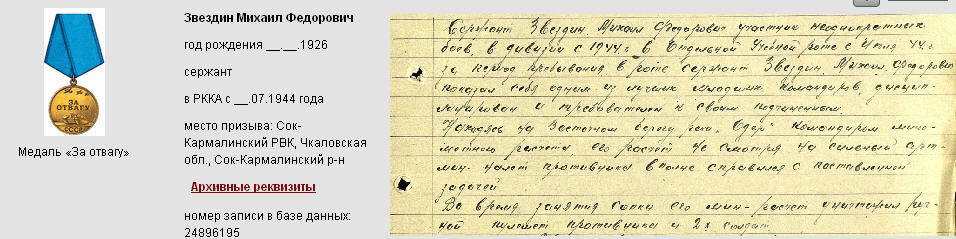 ЗА
ОТВАГУ
СССР
Медаль «За отвагу»
Звездин Михаил Федорович
год рождения __.__.1926
сержант
в РККА с __.07.1944 года
место призыва: Сок-
Кармалинский РВК, Чкаловская
обл., Сок-Кармалинский р-н
Архивные реквизиты
номер записи в базе данных:
24896195
Сержант Звездин Михаил Федорович участник неоднократных
боев, в дивизии с 1944 г. в Отдельной Учебной роте с 44 г.
за период пребывания в роте сержант Звездин Михаил Федорович
показал себя одним из лучших младших командиров, дисцип-
линирован и требователен к своим подчиненным.
Находясь на Восточном берегу реки "Одер" командиром мино-
метного расчета его расчет не смотря на сильный арт-
мин. налет противника вполне справился с поставленной
задачей
Во время занятия сопки его мин-расчет уничтожил руч-
ной пулемет противника и 2х солдат